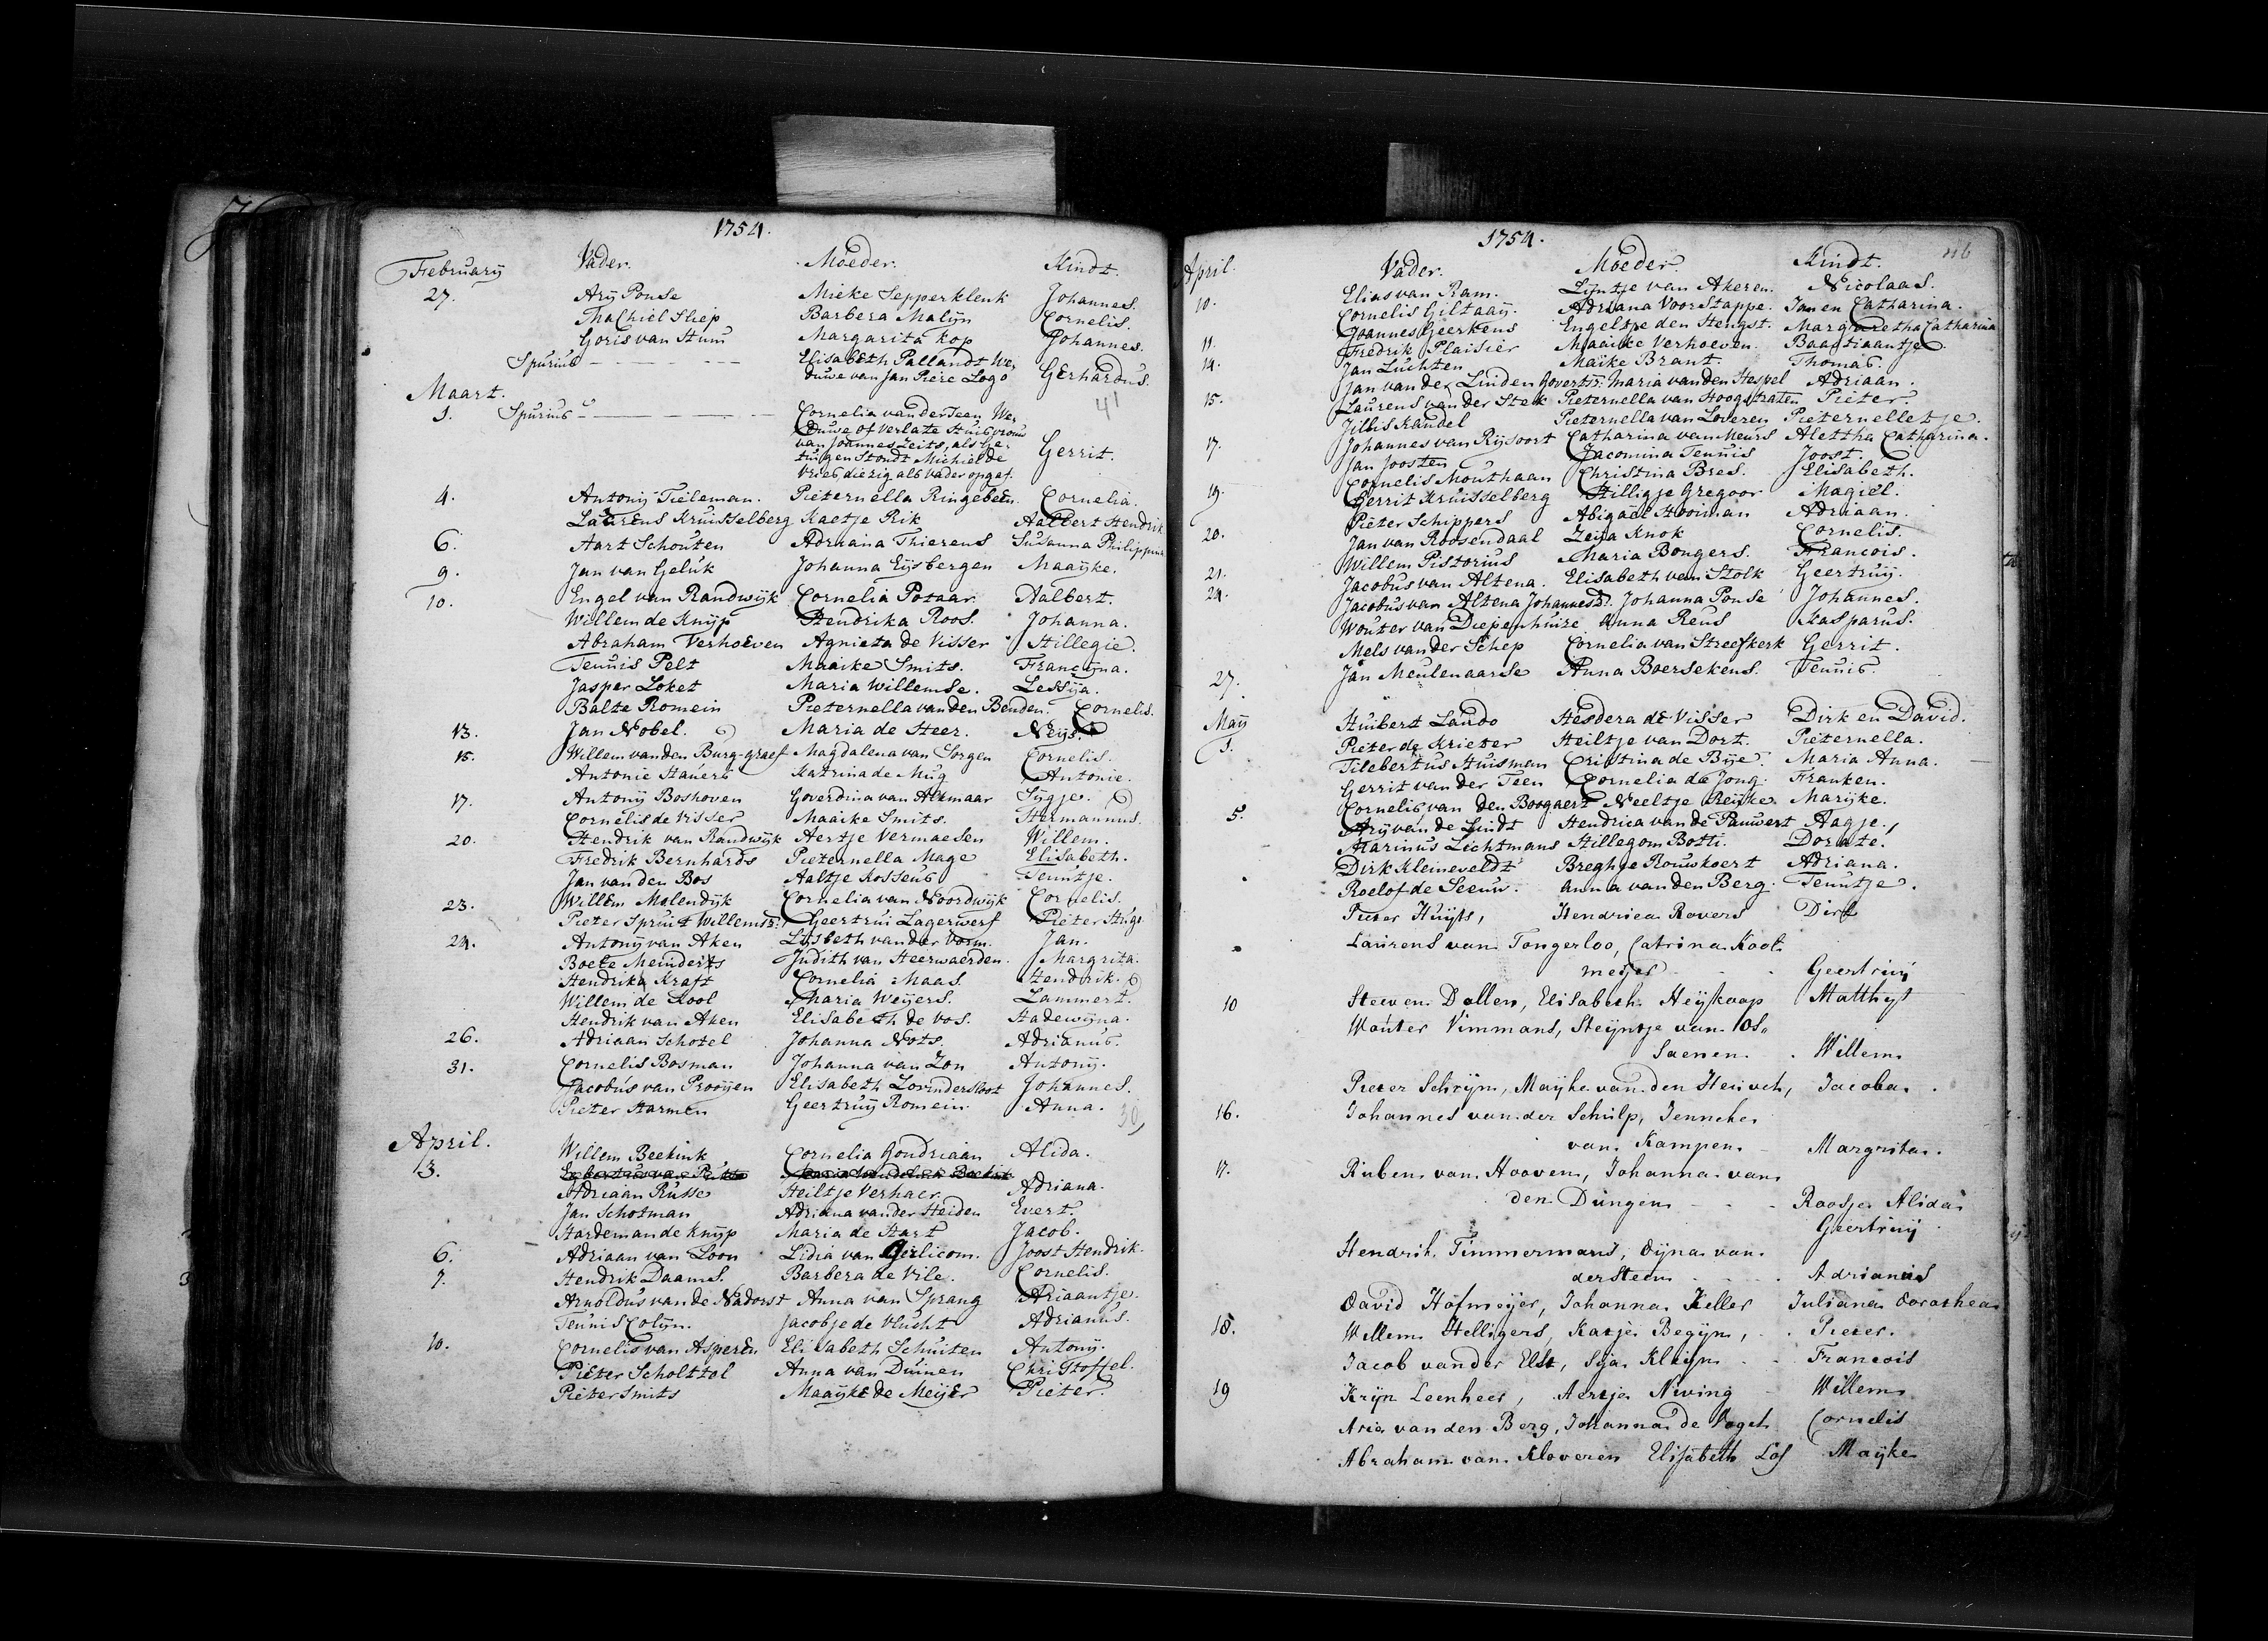 1754.
February Vader. Moeder. Kindt.
27. Arij Ponse Mieke Sepperklenk Johannes.
Machiel Sliep Barbera Malijn Cornelis.
Goris van Stum Margarita Kop Johannes.
Spurius Elisabeth Pallandt We,
duwe van Jan Piere Logo Gerhardus.
Maart.
1. Spurius Cornelia van der Teen We, 41
duwe of verlate Huisvrouw
van Joannes Zeits, als ge,
tuigen Stondt Michiel de Gerrit.
Vries, die zig als vader opgaf.
4. Antonij Tieleman. Pieternella Ringebeen. Cornelia.
Laurens Kruisselberg Kaetje Rik Aalbert Hendrik
6. Aart Schouten Adriana Thierens Susanna Philippina
9. Jan van Geluk Johanna Eijsbergen Maaijke.
10. Engel van Randwijk Cornelia Potaar Aalbert.
Willem de Knijp Hendrika Roos. Johanna.
Abraham Verhoeven Agnieta de Visser Hillegie.
Teunis Pelt Maaike Smits. Francijna.
Jasper Loket Maria Willemse. Lessija.
Balte Romein Pieternella van den Benden. Cornelis.
13. Jan Nobel. Maria de Heer. Neijs.
15. Willem van den Burg-graef Magdalena van Sorgen Cornelis.
Antonie Stauers Katrina de Mug Antonie.
17. Antonij Boshoven Goverdina van Alkmaar Sijgje.
Cornelis de Visser Maaike Smits. Hermannus.
20. Hendrik van Randwijk Aertje Vermaesen Willem.
Fredrik Bernhards Pieternella Mage Elisabeth.
Jan van den Bos Aaltje Kosseus Teuntje.
23. Willem Molendijk Cornelia van Noordwijk Cornelis.
Pieter Spruit Willemsz: Geertrui Lagerwerf Pieter Hugo
24. Antonij van Aken Lijsbeth van der Vorm. Jan.
Boele Meinderts Judith van Heerwaerden. Margrita.
Hendrik Kraft Cornelia Maas. Hendrik.
Willem de Kool Maria Weijers. Lammert.
Hendrik van Aken Elisabeth de Vos. Hadewijna.
26. Adriaan Schotel Johanna Nots. Adrianus.
31. Cornelis Bosman Johanna van Zon Antonij.
Jacobus van Prooijen Elisabeth Lovindersloot Johannes.
Pieter Harmen Geertruij Romein. Anna. 30,
April. Willem Beekink Cornelia Goudriaan Alida.
3.
Adriaan Russe Heiltje Verhaer Adriana.
Jan Schotman Adriana van der Heiden Evert.
Hardeman de Knijp Maria de Hart Jacob.
6. Adriaan van Loon Lidia van Girlicom. Joost Hendrik.
7. Hendrik Daams. Barbera de Vile. Cornelis.
Arnoldus van de Nadorst Anna van Sprang Ariaantje.
Teunis Colijn. Jacobje de Vlucht Adrianus.
10. Cornelis van Asperen Elisabeth Schuiten Antonij.
Pieter Scholttol Anna van Duinen Christoffel.
Pieter Smits Maaijke de Meijer Pieter.
1754. 116
April. Vader. Moeder. Kindt.
10. Elias van Ram. Lijntje van Akeren. Nicolaas.
Cornelis Giltaaij. Adriana Voorstappe. Jan en Catharina.
Joannes Geerkens Engeltje den Hengst. Margaretha Catharina
11. Fredrik Plaisier Maaike Verhoeven. Baastiaantje.
14. Jan Luchten Maike Brant. Thomas.
Jan van der Linden Govertsz: Maria van den Hespel Adriaan.
15. Laurens van der Stek Pieternella van Hoogstraten Pieter.
Jillis Kandel Pieternella van Loveren Pieternelletje.
17. Johannes van Rijsoort Catharina van Meurs Alettha Catharina.
Jan Joosten Jacomina Teunis Joost.
Cornelis Mouthaan Christina Bres. Elisabeth.
19. Gerrit Kruisselberg Hilligje Gregoor Magiel.
Pieter Schippers Abigaël Hooiman Adriaan.
20. Jan van Roosendaal Zeija Knok Cornelis.
Willem Pistorius Maria Bongers. Francois.
21. Jacobus van Altena. Elisabeth van Stolk Geertruij.
24. Jacobus van Altena Johannesz. Johanna Ponse Johannes.
Wouter van Diepenhuize Anna Reus Kasparus.
Mels van der Schep Cornelia van Streefkerk Gerrit.
27. Jan Meulenaarse Anna Boersekens. Teunis.
Maij Huibert Lando Hesdera de Visser Dirk en David.
1. Pieter de Krieter Heiltje van Dort. Pieternella.
Tilebertus Huisman Cristina de Bije. Maria Anna.
Gerrit van der Teen Cornelia de Jong. Franken.
Cornelis van den Boogaert Neeltje Reijke. Marijke.
5. Arij van de Lindt Hendrica van de Pauwert Aagje.
Marinus Lichtmans Hillegom Botti. Dorate.
Dirk Kleineveldt Breghje Rouwkoert Adriana.
Roelof de Leeuw. Anna van den Berg. Teuntje.
Pieter Huijts, Hendrica Rovers Dirk
Laurens van Tongerloo, Catrina Koot
meijer Geertruij
10 Steeven Dollen, Elisabeth Heijkoop Matthijs
Wouter Vimmans, Steijntje van Os,,
saenen. Willem
Pieter Schrijn, Maijke van den Heuvel, Jacoba.
16. Johannes van der Schulp, Jenneke
van Kampen Margrita.
17. Ruben van Hooven, Johanna van
den Dungen Roosje Alida
Geertruij
Hendrik Timmermans, Dijna van
der Steen Adrianus
David Hofmeijer, Johanna Keller Juliana Dorothea
18. Willem Helligers, Katje Begijn, Pieter.
Jacob van der Elst, Sija Kleijn Francois
19 Krijn Leenheer, Aertje Niving Willem
Arie van den Berg, Johanna de Vogel Cornelis
Abraham van Kloveren Elisabeth Los Maijke